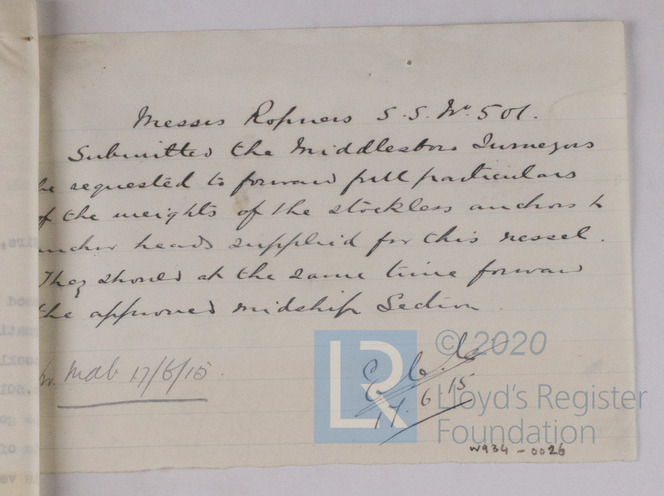 Messrs Ropners S.S. No. 501.
Submitted the Middlesbro Surveyors
be requested to forward full particulars
of the weights of the stockless anchors &
anchor heads supplied for this vessel.
They should at the same time forward
the approved midship Section
Mdb 17/6/15.
17.6.15
LR
© 2020
Lloyd's Register
Foundation
W934-0026